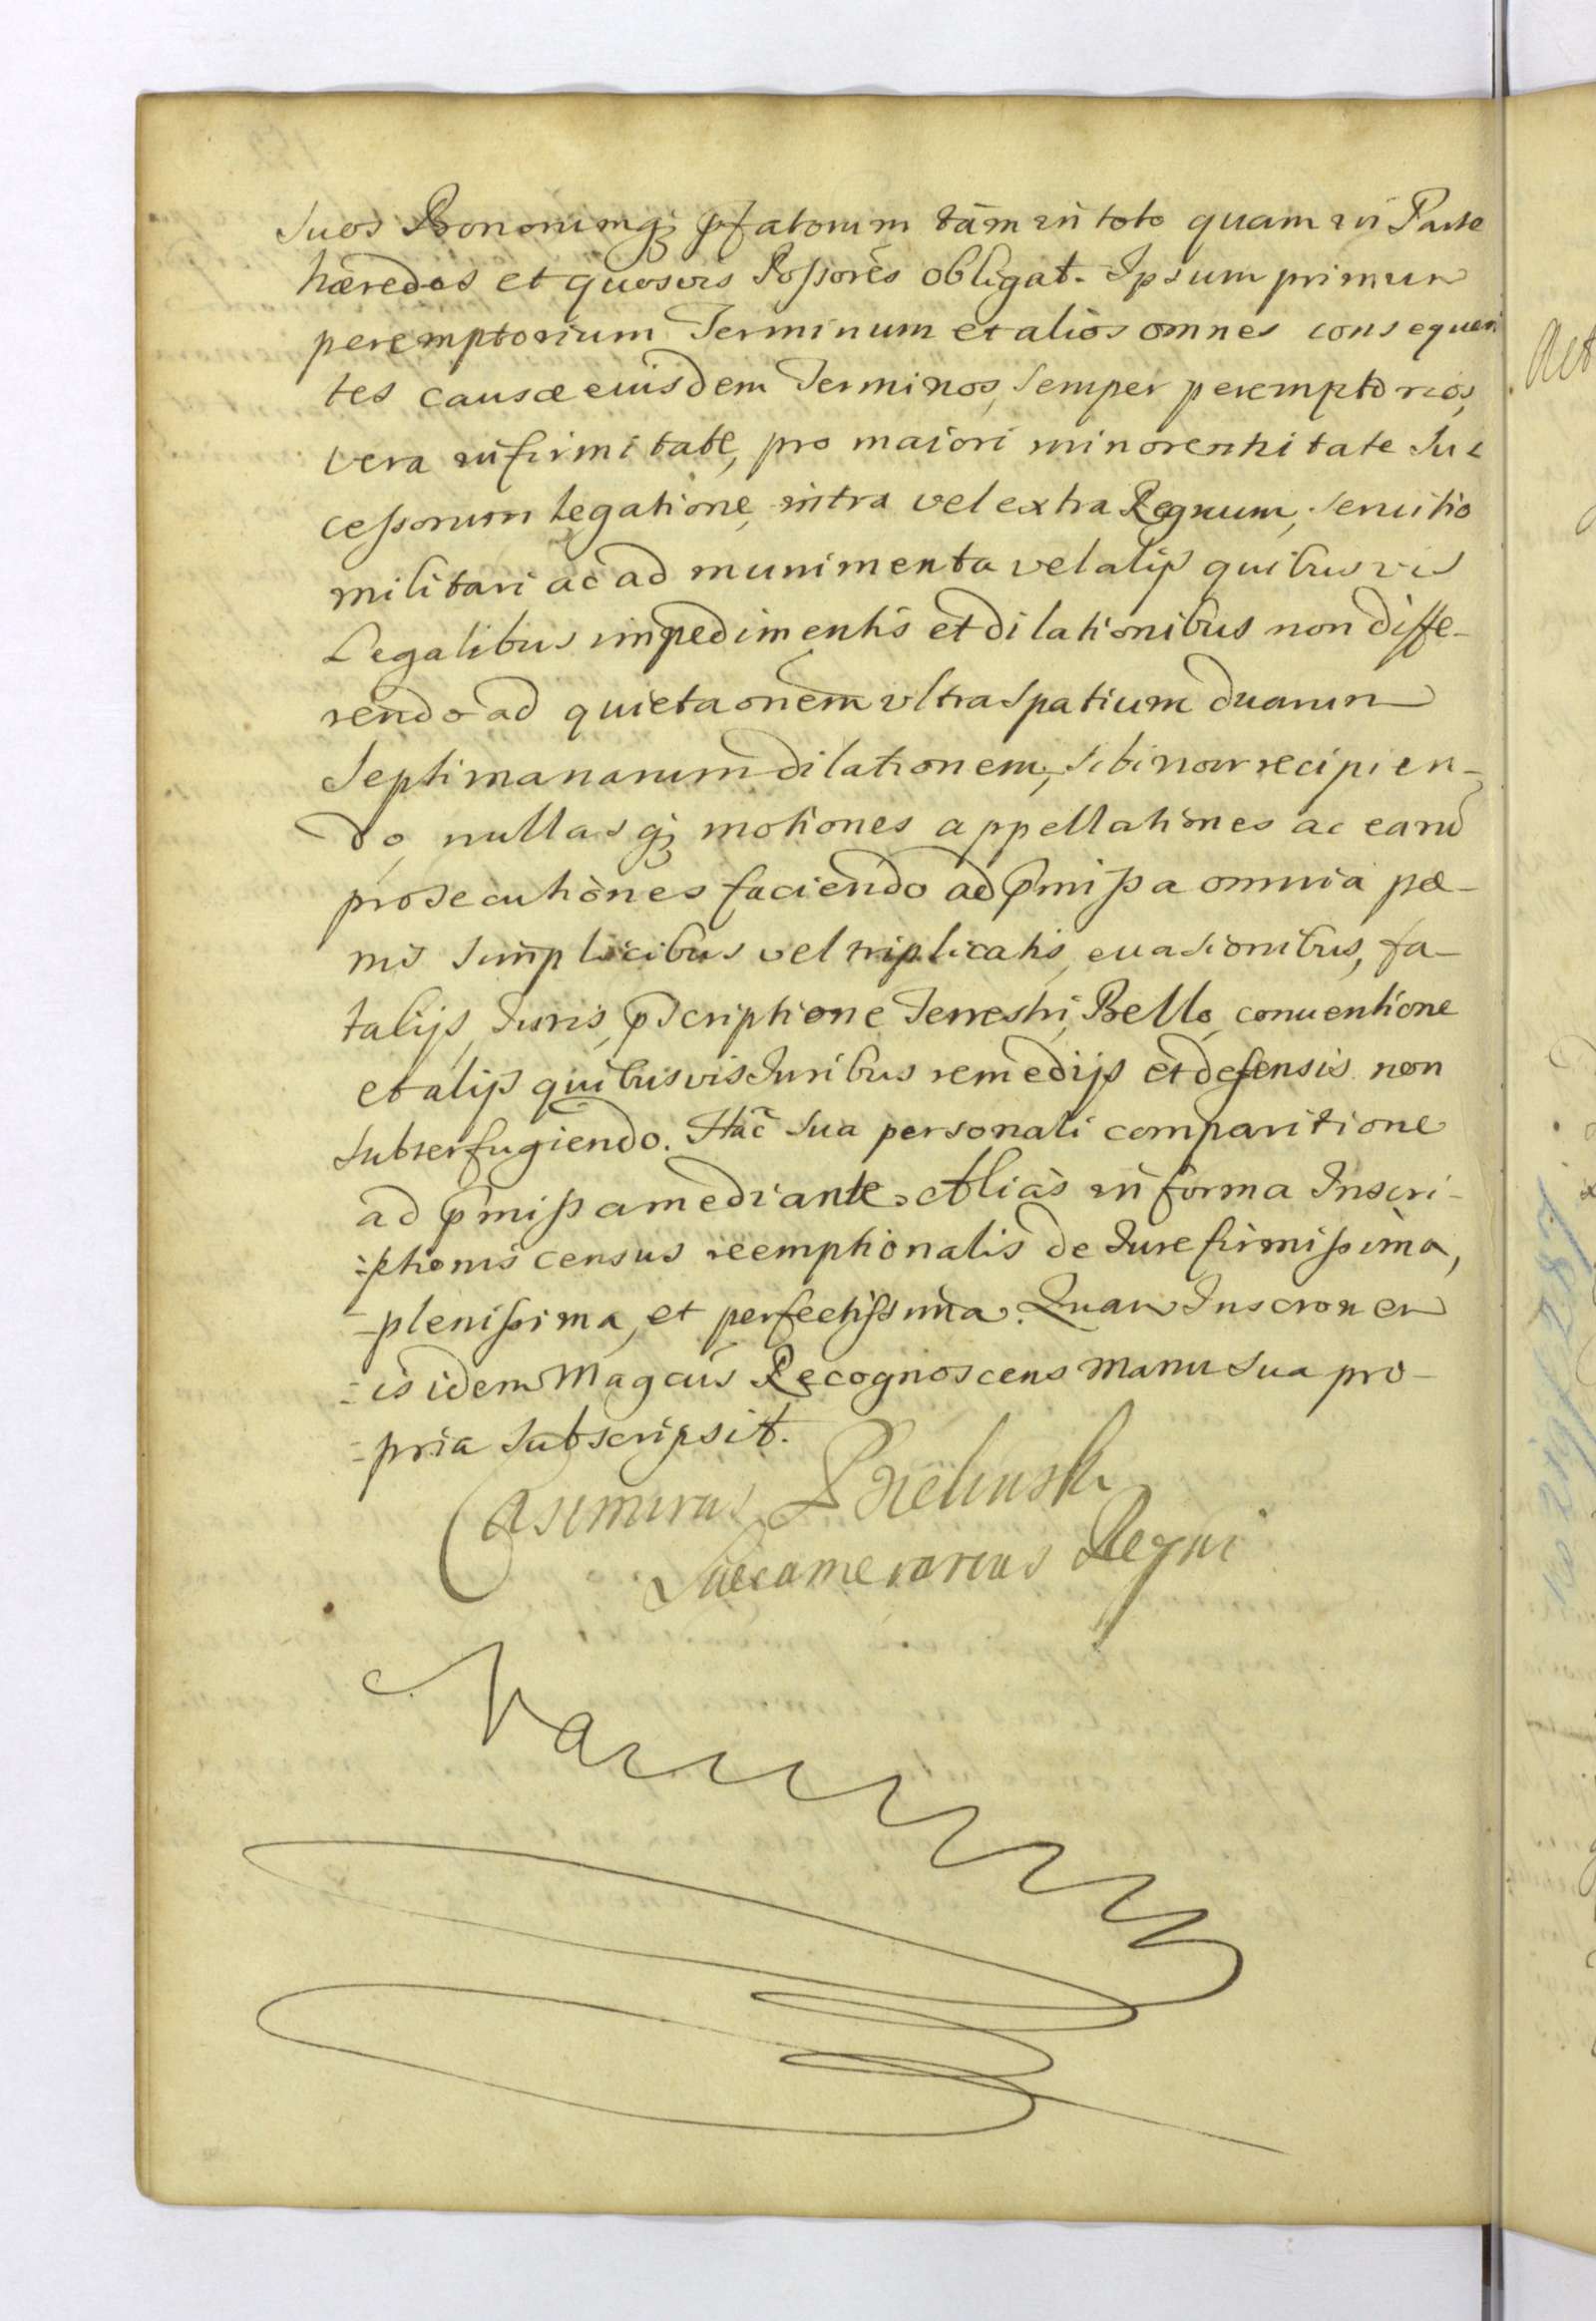 suos Bonorumq; pfatorum tàm in toto quam in Parte
hæredes et quosvis Possorēs obligat. Ipsum primum
peremptorium Terminum et alios omnes consequen
tes causæ eiusdem Terminos, semper peremptorios,
vera infirmitate, pro maiori minorennitate Suc
cessorum legatione, intra vel extra Regnum, seruitio
militari ac ad munimenta vel alijs quibusvis
Legalibus impedimentis et dilationibus non diffe-
rendo ad quietaonem vltra spatium duarum
Septimanarum dilationem, sibi non recipien-
do, nullasq; motiones appellationes ac earud
prosecutiones faciendo ad pmissa omnia pæ-
nis simplicibus vel triplicatis, euasionibus, fa-
talijs, Juris, pscriptione Terrestri, Bello, conuentione
et alijs quibusvis Juribus remedijs et defensis non
subterfugiendo. Hac sua personali comparitione
ad pmissa mediante. Aliàs in forma Inscri-
-ptionis census reemptionalis de Jure firmissima,
-plenissima, et perfectissima. Quam Inscronem
-is idem Magcus Recognoscens Manu sua pro-
-pria subscripsit.
Casimirus Bielinski
Succamerarius Regni
Act